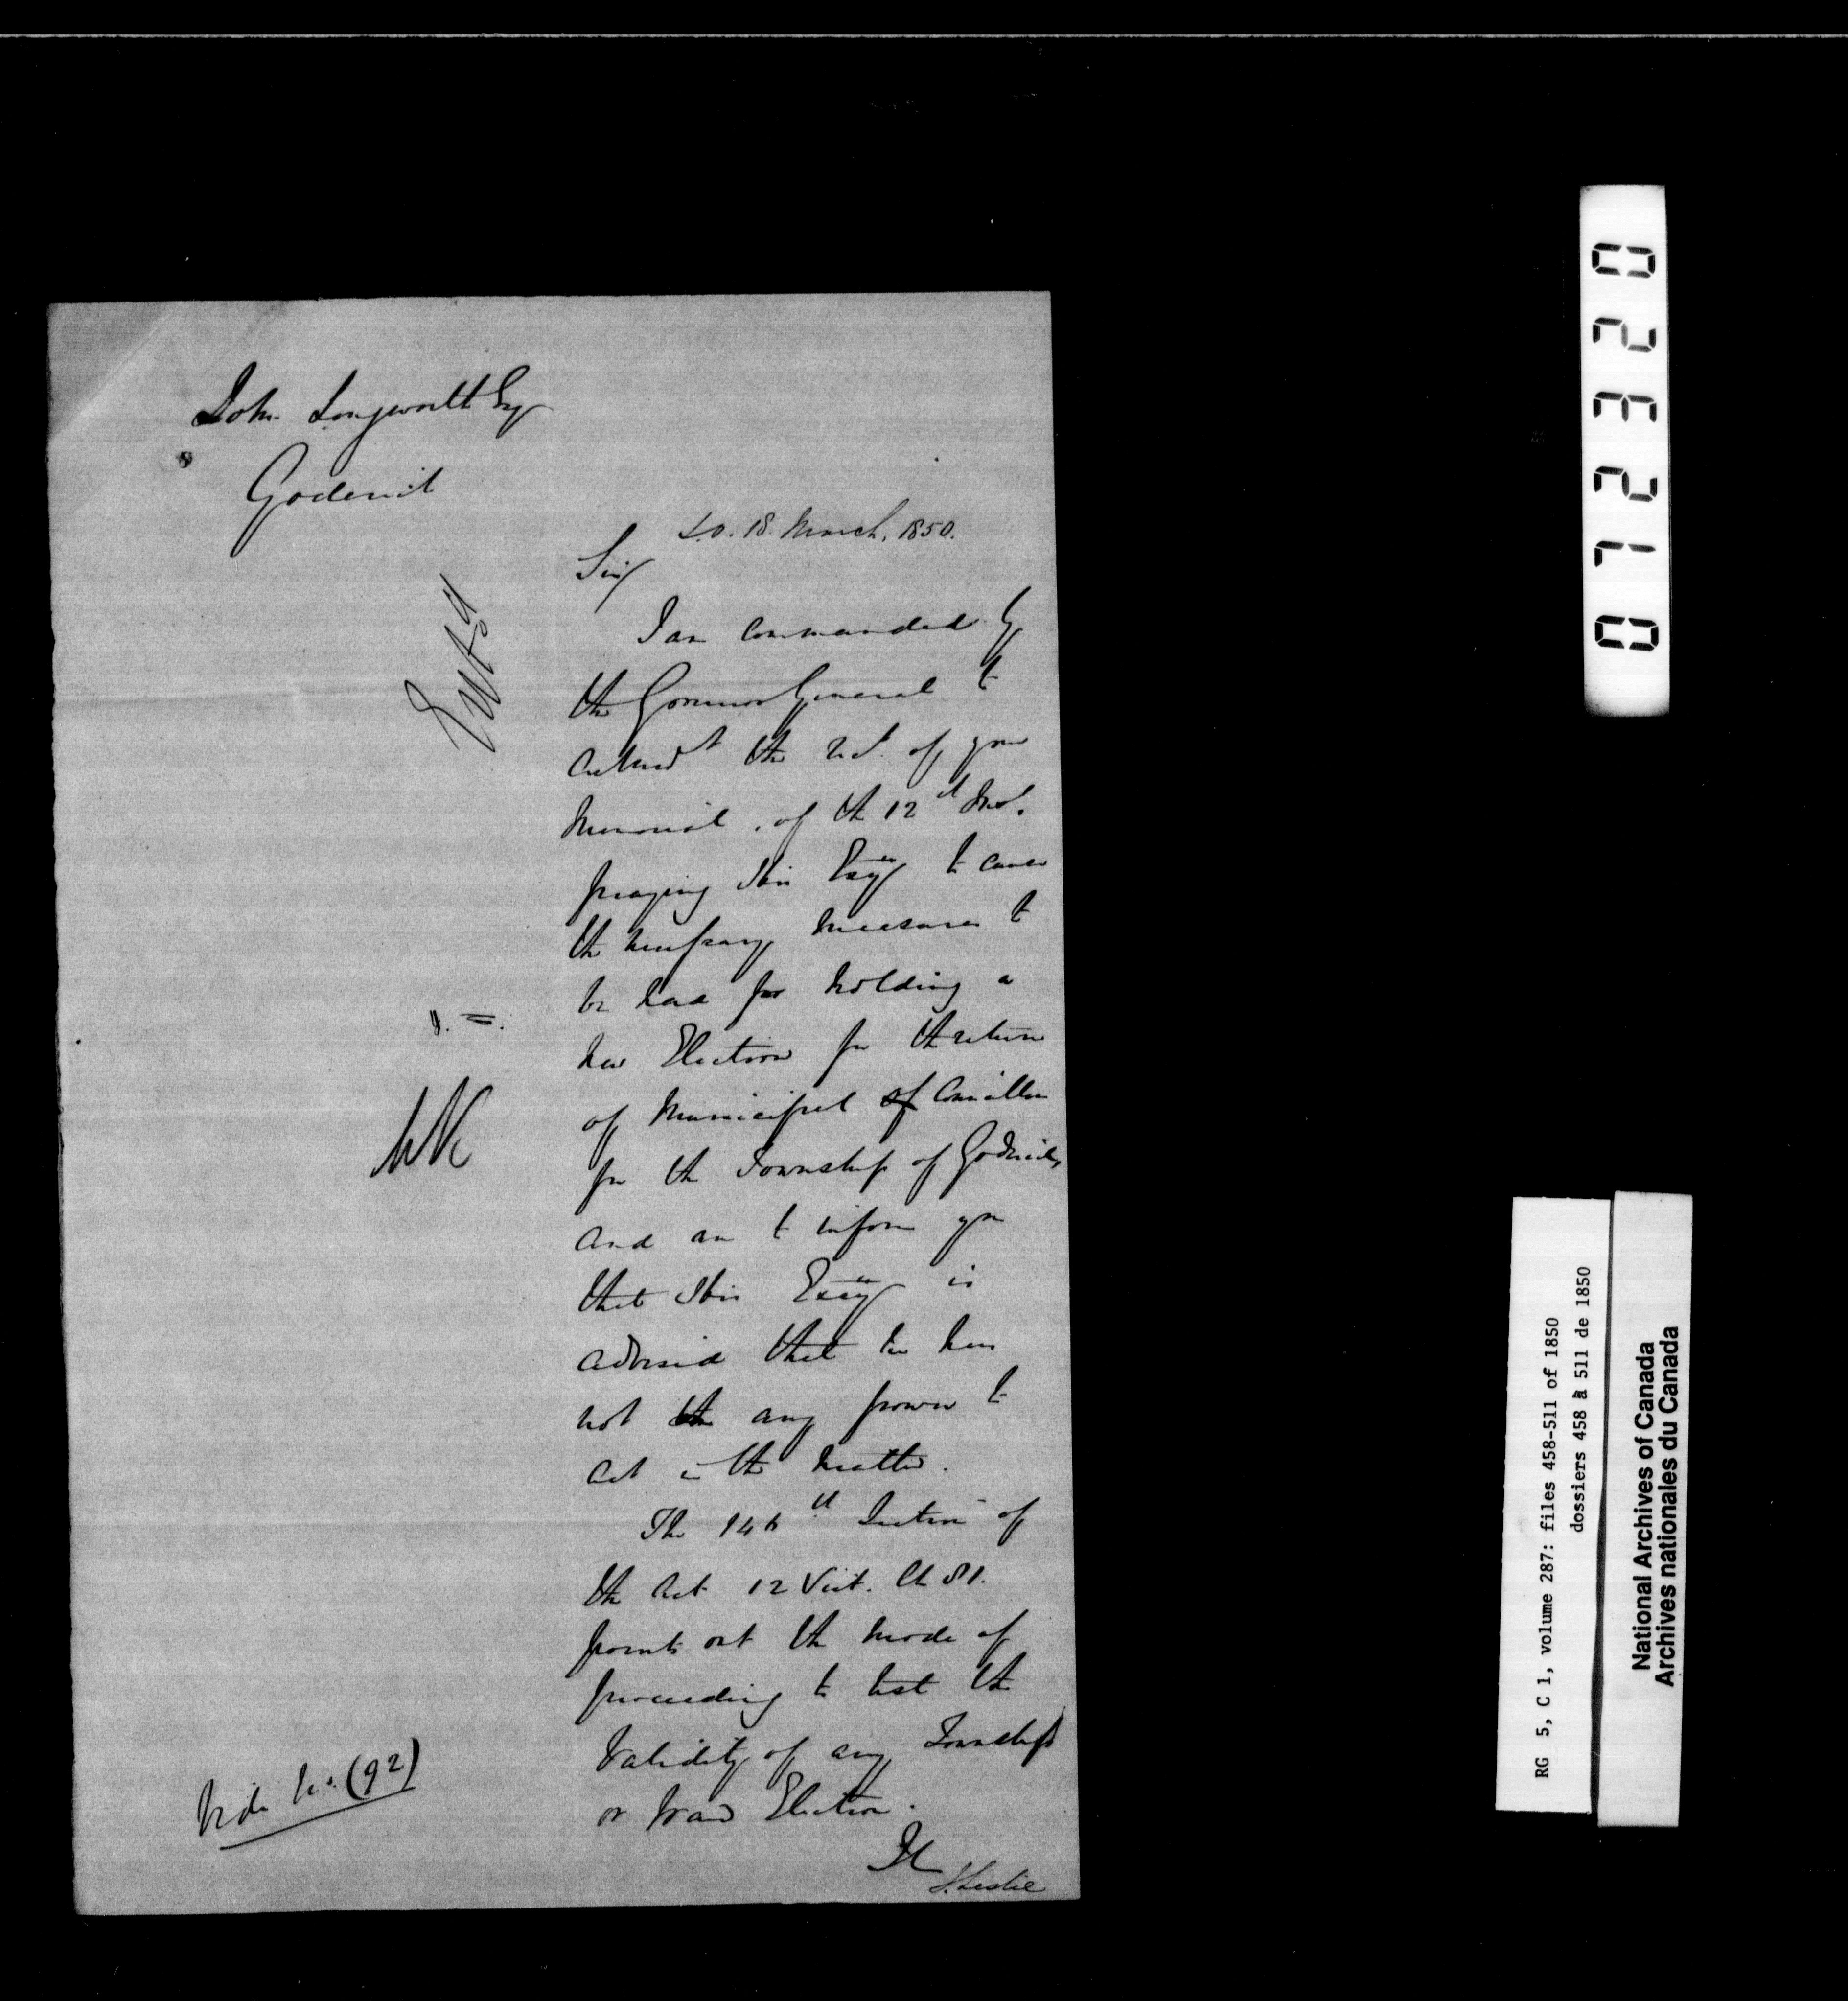 John Longworth Esq
Goderich
S.O. 18 March, 1850.
Sir,
I am commanded by
the Governor General to
acknowt the rct. of your
Memorial, of the 12th Inst.
praying His Excy to cause
the necessary measures to
be had for holding a
new Election for the return
of Municipal of Councillors
for the Township of Goderich,
and am to inform you
that His Excy is
advised that he has
not the any power to
act in the matter.
The 146th Section of
the Act 12 Vict. Ch 81.
points out the mode of
proceeding to test the
validity of any Township
or Ward Election.
J. Leslie
Vide No. (92)
072320
RG 5, C 1, volume 287: files 458-511 of 1850
dossiers 458 à 511 de 1850
National Archives of Canada
Archives nationales du Canada